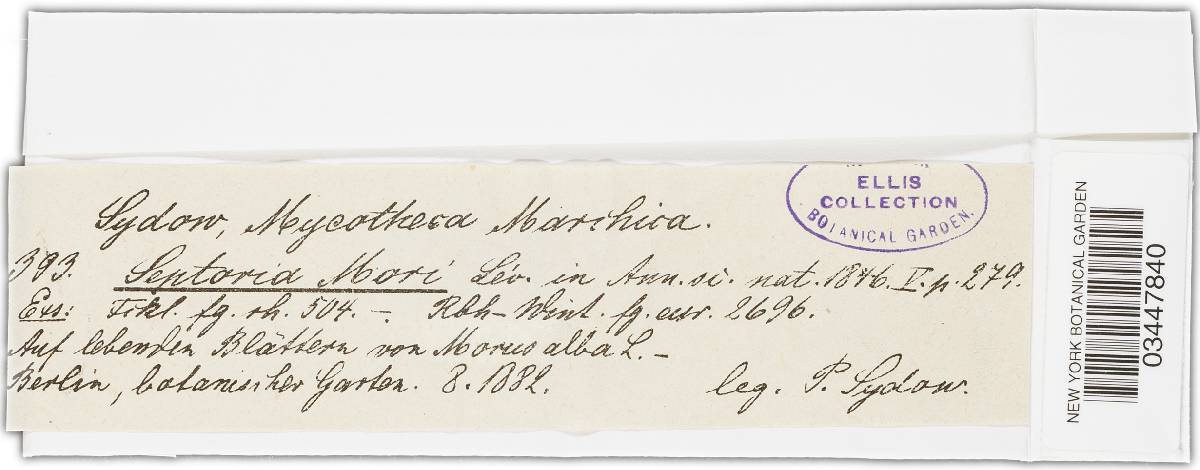 Sydow, Mycotheca Marchica.
393. Septoria Mori Lév. in Ann. sc. nat. 1846. V. p. 279.
Exs: Fckl. fg. rh. 504. –. Rbh-Wint. fg. eur. 2696.
Auf lebenden Blättern von Morus alba L. –
Berlin, botanischer Garten. 8. 1882. leg. P. Sydow.
ELLIS
COLLECTION
BOTANICAL GARDEN.
NEW YORK BOTANICAL GARDEN
03447840